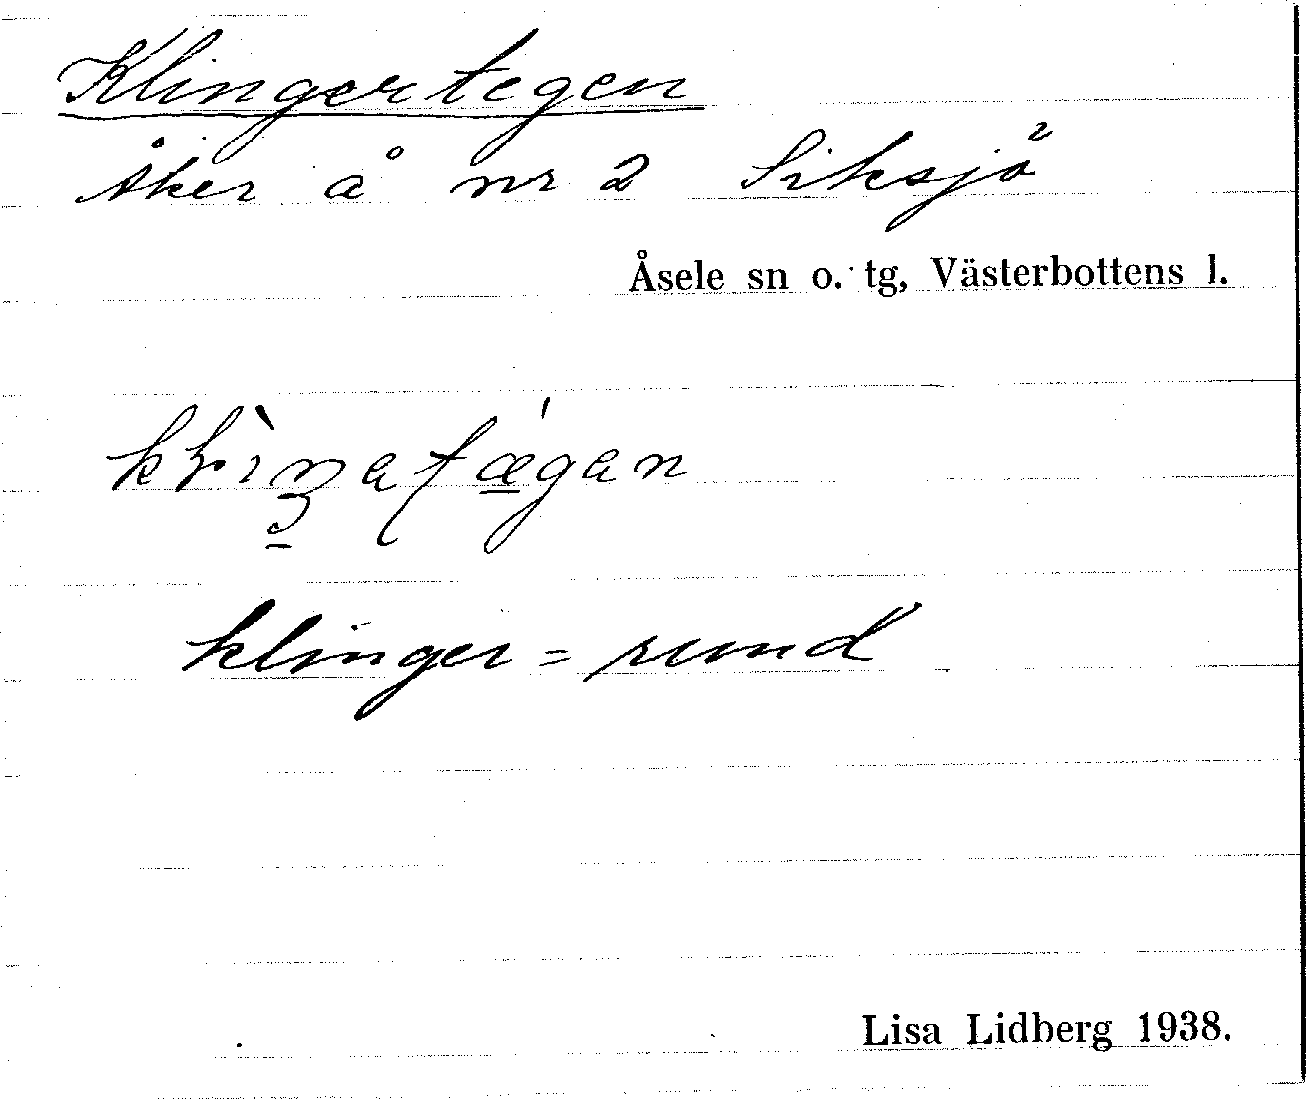 Klingertegen
Åker å nr 2 Siksjö
Åsele sn o. tg, Västerbottens l.
klinger = rund
Lisa Lidberg 1938.